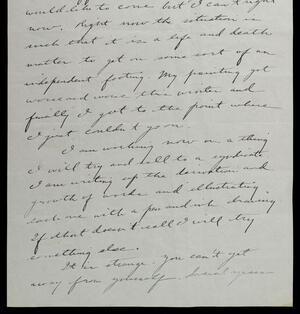 would like to come but I can't right
now. Right now the situation is
such that it is a life and death
matter to get on some sort of an
independent footing. My painting got
worse and worse this winter and
finally I got to the point where
I just couldn't go on.
I am working now on a thing
I will try and sell to a syndicate
I am writing up the derivation and
growth of words and illustrating
each one with a pen and ink drawing
If that doesn't sell I will try
something else.
It is strange. you can't get
away from yourself. Several years